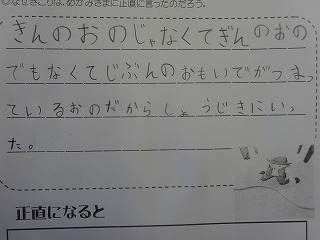 ◎なぜきこりは、めがみさまに正直に言ったのだろう。
きんのおのじゃなくてぎんのおの
でもなくてじぶんのおもいでがつまっ
ているおのだからしょうじきにいっ
た。
正直になると